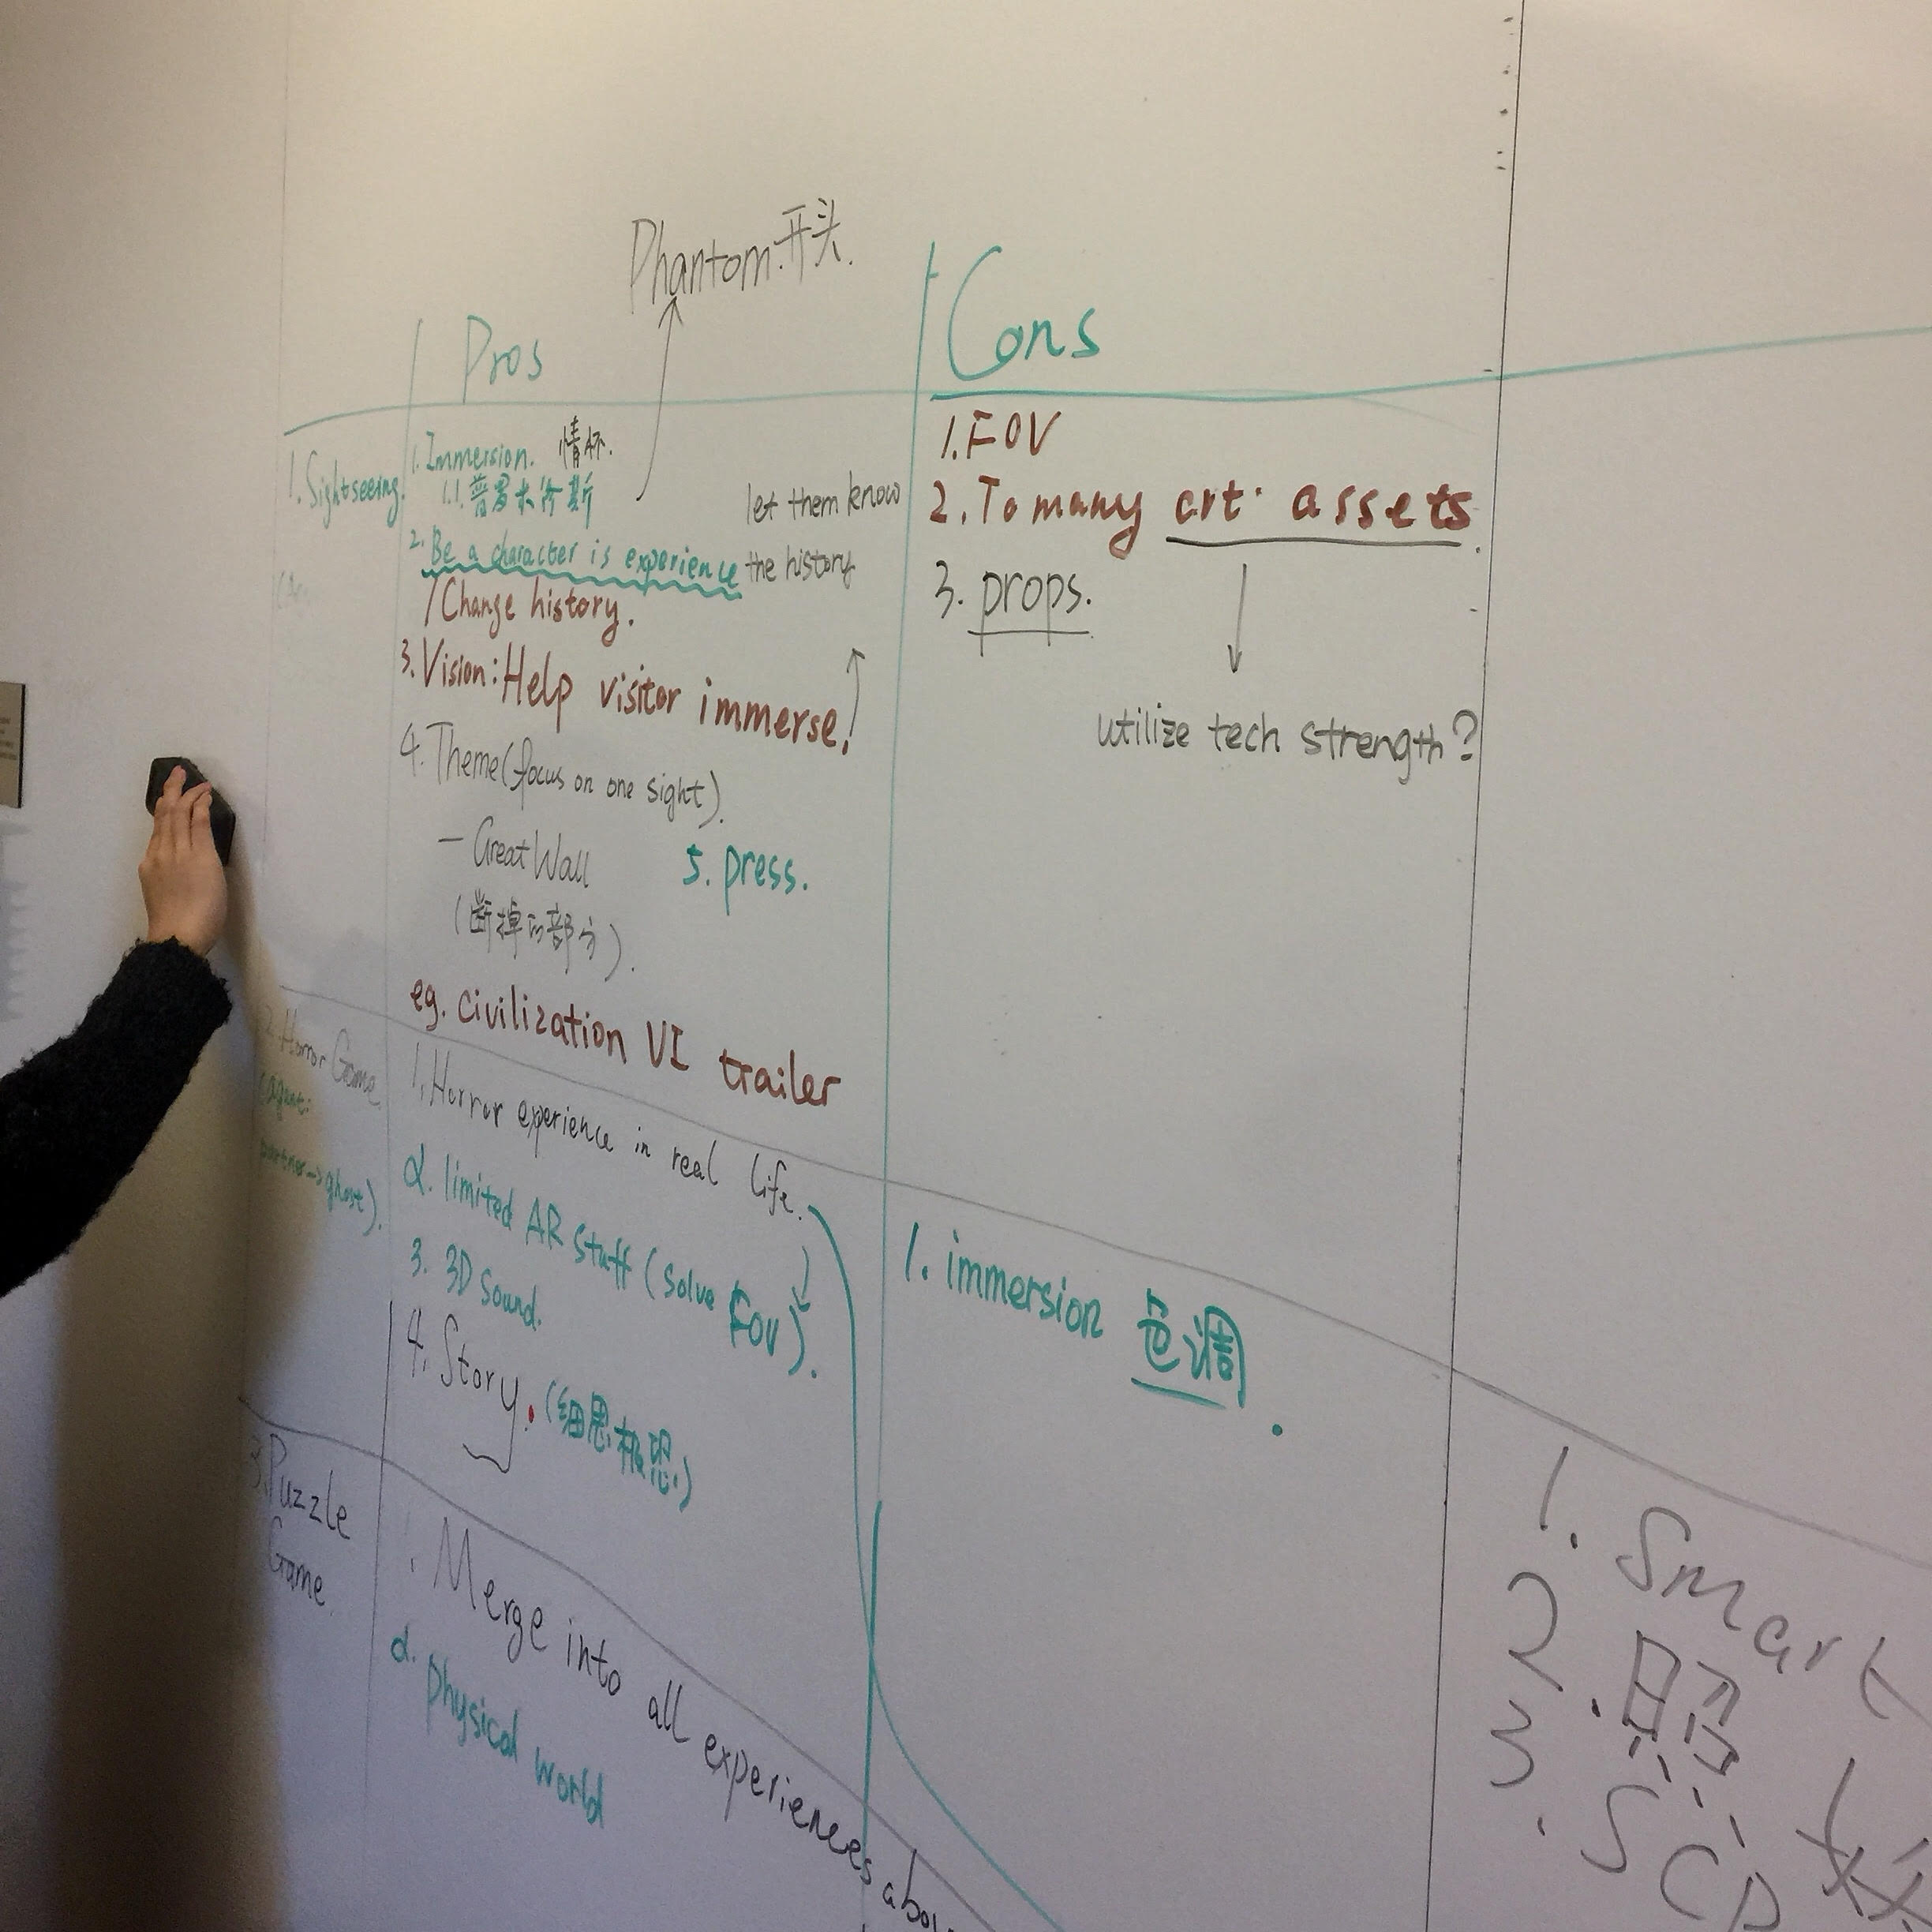 Phantom 开头.
Pros
Cons
1. Sightseeing.
1. Immersion. 情怀.
1.1. 普罗米修斯
2. Be a character is experience
/Change history.
let them know
the history
3. Vision: Help visitor immerse!
4. Theme (focus on one sight).
- Great Wall
(断掉的部分).
5. press.
eg. Civilization VI trailer
1. FOV
2. To many art assets.
3. props.
utilize tech strength?
2. Horror Game
(agent:
partner→ghost).
1. Horror experience in real life.
2. limited AR stuff (solve FOV).
3. 3D Sound.
4. Story. (细思极恐)
1. immersion 色调.
3. Puzzle
Game.
1. Merge into all experiences abov
2. physical world
1. Smart
2. 照
3. SCP